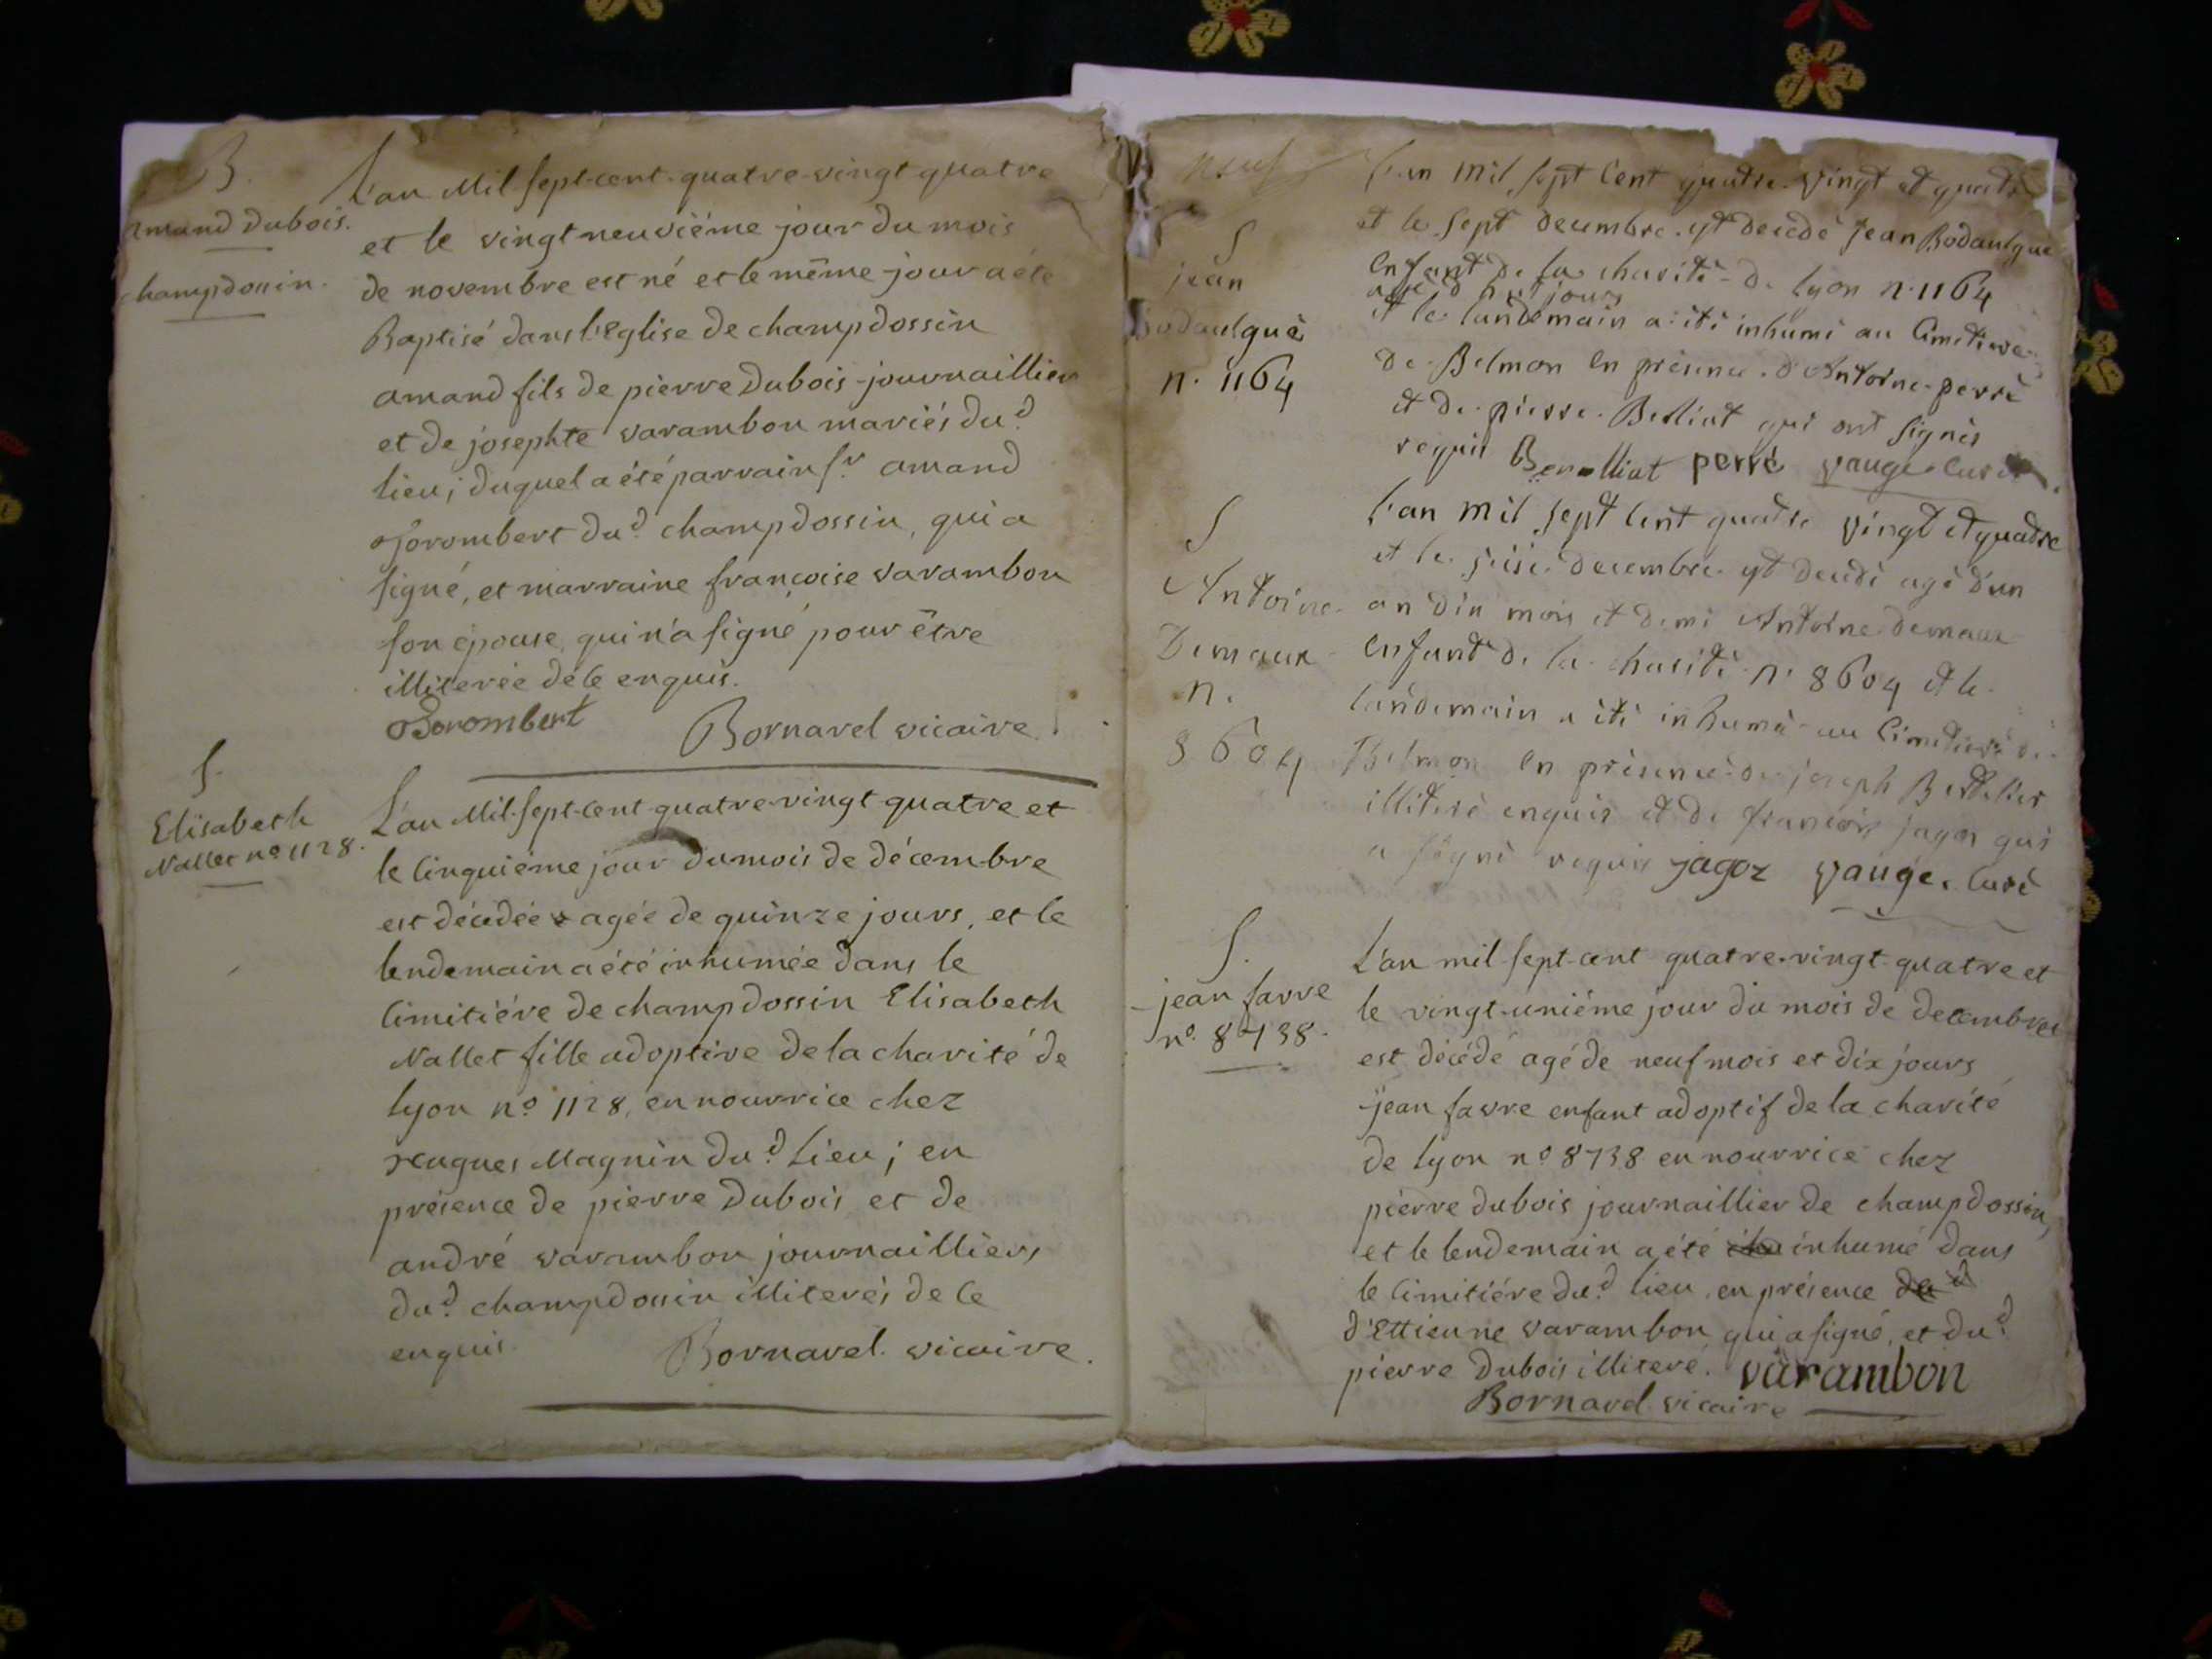 B.
amand Dubois.
champdossin.
L'an Mil-sept-cent-quatre-vingt quatre
et le vingt neuviéme jour du mois
de novembre est né et le même jour a été
Baptisé dans l'Eglise de champdossin
amand fils de pierre Dubois journaillier
et de josephte varambon mariés du.d
lieu; duquel a été parrain s.r amand
Gorombert du.d champdossin, qui a
signé, et marraine françoise varambon
son épouse, qui n'a signé pour être
illiterée de ce enquis.
Gorombert Bornarel vicaire
S.
Elisabeth
Nallet n.o 1128.
L'an Mil-sept-cent-quatre-vingt quatre et
le cinquiéme jour du mois de décembre
est décédée agée de quinze jours, et le
lendemain a été inhumée dans le
cimitiére de champdossin Elisabeth
Nallet fille adoptive de la charité de
lyon n.o 1128, en nourrice chez
Magnin du.d lieu; en
présence de pierre Dubois et de
andré varambon journailliers
du.d champdossin illiterés de ce
enquis. Bornarel vicaire.
neuf
S
jean
Bodaulgue
n. 1164
l'an mil sept cent quatre vingt et quatre
et le sept decembre est decedé jean Bodaulgue
enfant de la charité de lyon n. 1164
agé d huit jours
et le landemain a été inhumé au cimetiere
de Belmon en presence d'Antoine perré
et de pierre Berliat qui ont signés
requis perré vauge curé
S
Antoine
Demaux
n.
8604
l'an mil sept cent quatre vingt et quatre
et le seise decembre est decedé agé d'un
an dix mois et demi Antoine demaux
enfant de la charité n. 8604 et le
landemain a été inhumé au cimetiere de
Belmon en présence de joseph Berthelier
illiteré enquis et de françois jagoz qui
a signé requis jagoz vauge curé
S.
jean favre
n.o 8738.
L'an mil-sept-cent quatre-vingt-quatre et
le vingt-uniéme jour du mois de decembre
est décédé agé de neuf mois et dix jours
jean favre enfant adoptif de la charité
de lyon n.o 8738 en nourrice chez
pierre dubois journaillier de champdossin,
et le lendemain a été inhumé dans
le cimitiére du.d lieu, en présence
d'Ettienne varambon qui a signé, et du.d
pierre Dubois illiteré. varambon
Bornarel vicaire